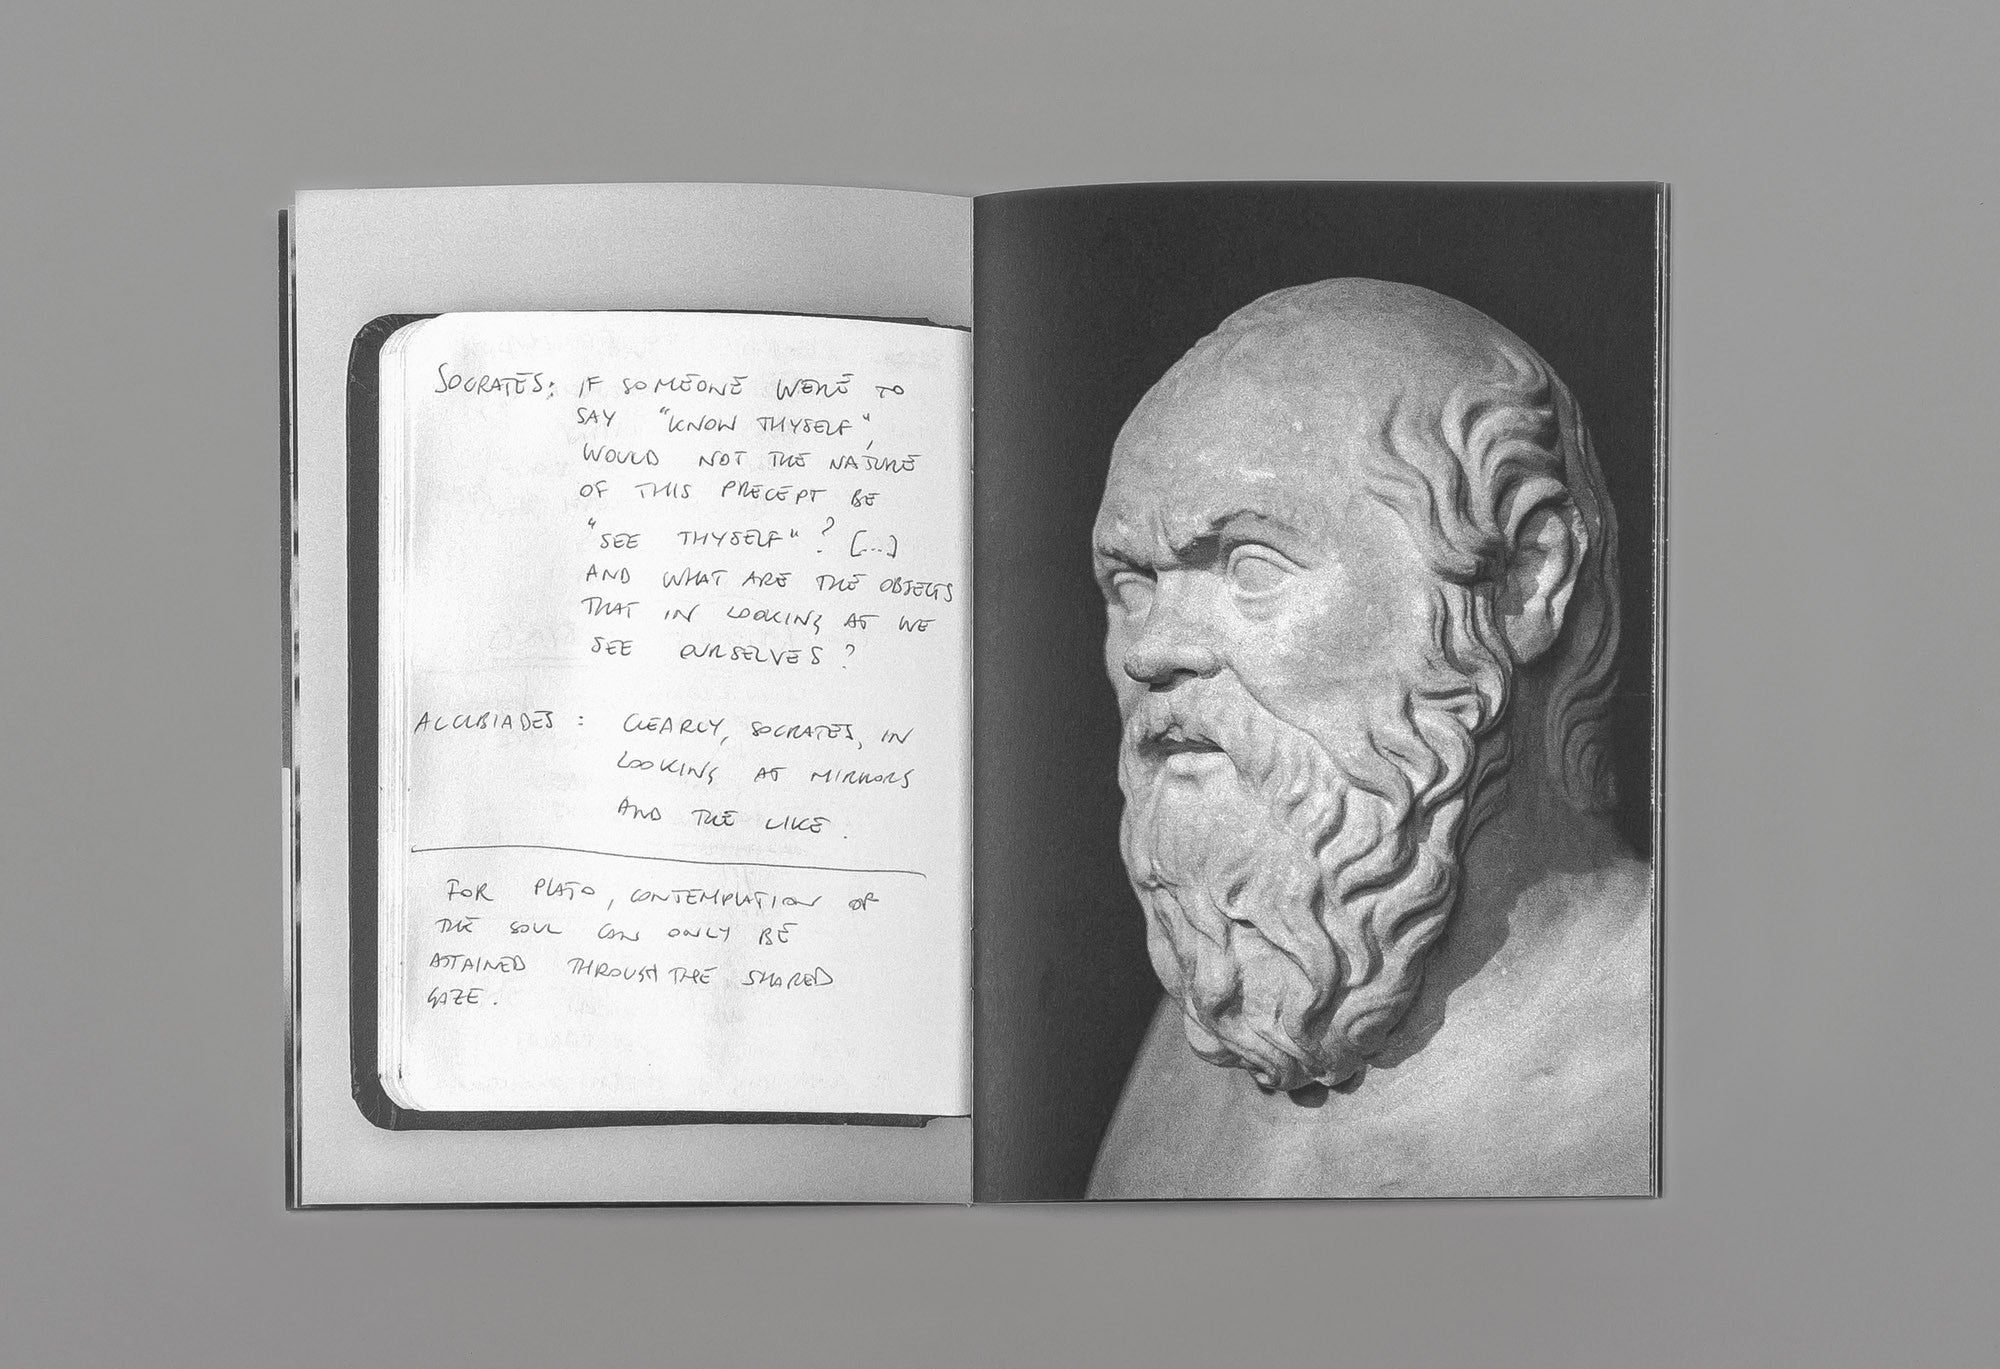 SOCRATES: IF SOMEONE WERE TO
SAY "KNOW THYSELF",
WOULD NOT THE NATURE
OF THIS PRECEPT BE
"SEE THYSELF"? [...]
AND WHAT ARE THE OBJECTS
THAT IN LOOKING AT WE
SEE OURSELVES?
ALCIBIADES: CLEARLY, SOCRATES, IN
LOOKING AT MIRRORS
AND THE LIKE.
FOR PLATO, CONTEMPLATION OF
THE SOUL CAN ONLY BE
ATTAINED THROUGH THE SHARED
GAZE.